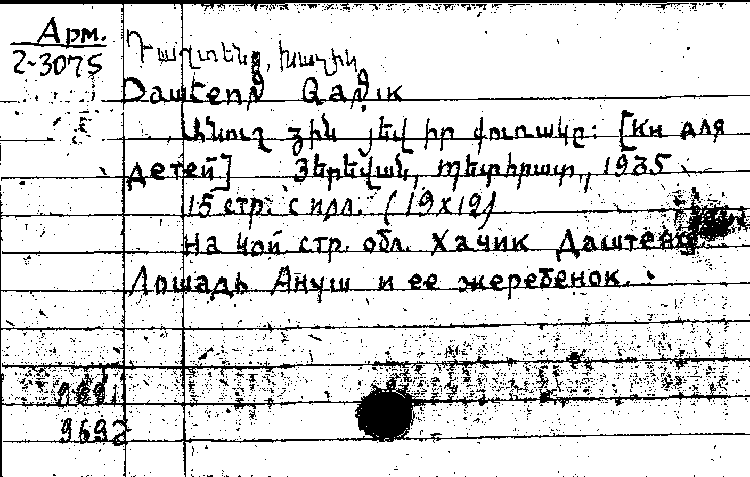 Арм.
2-3075
Դաշտենց, Խաչիկ
Անուշ ձին յեվ իր քուռակը: [Кн для
детей] Յերեվան, Պետհրատ, 1935
15 стр. с илл. (19x12)
на 4ой стр. обл. Хачик Даштенц
Лошадь Ануш и ее жеребенок.
9692